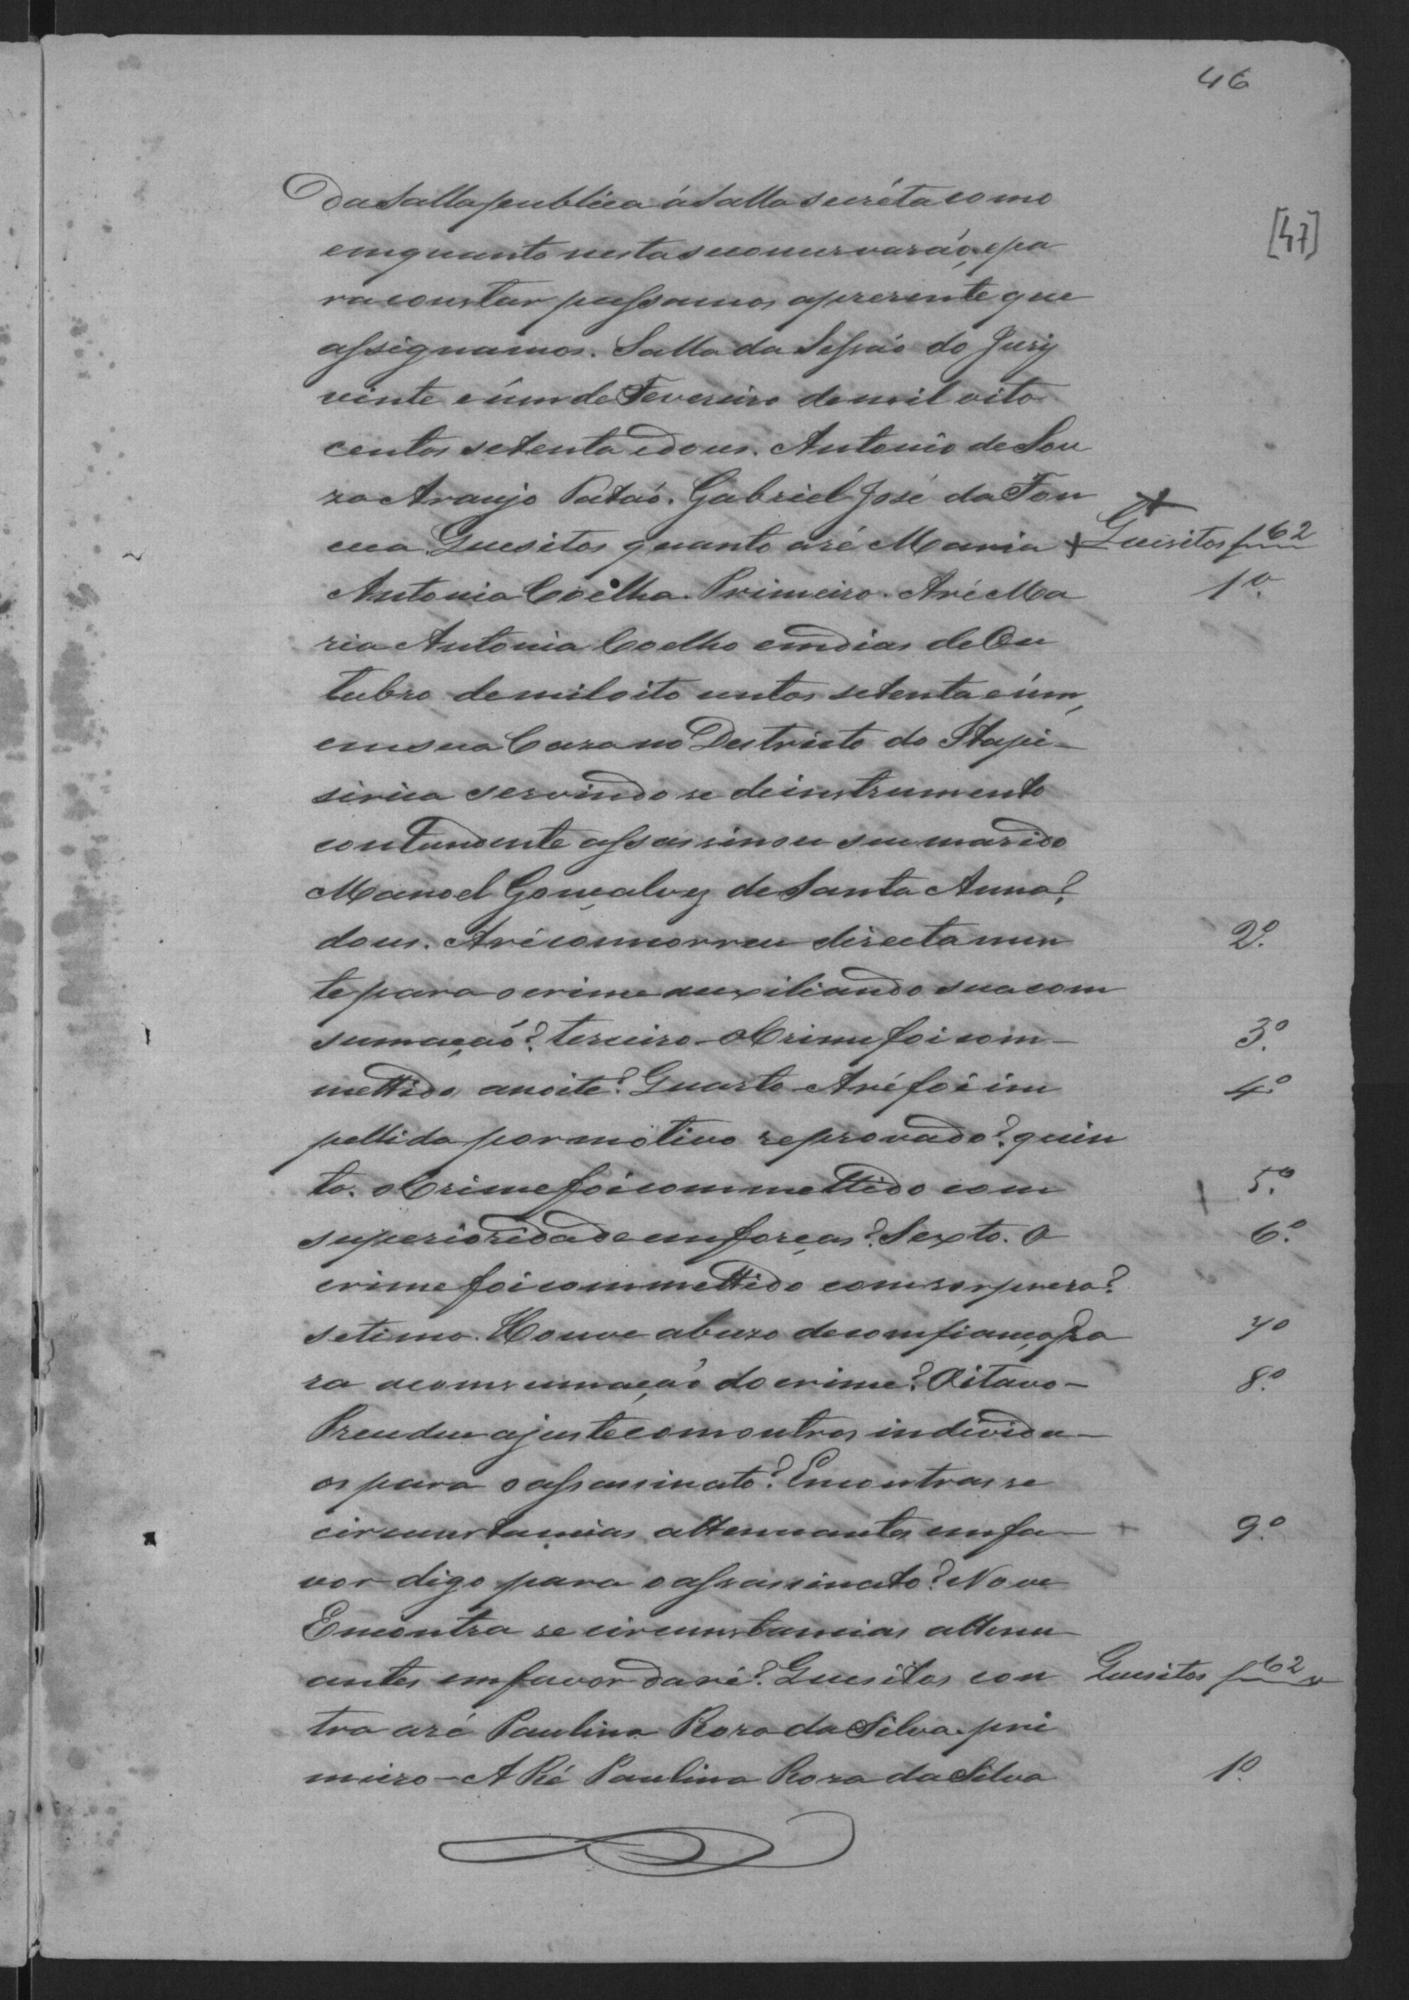 46
[47]
Da Salla publica á Salla secréta como
emquanto nesta se conservarão, e pa
ra constar passamos a prezente que
assignamos. Salla da Sessão do Jury
vinte e úm de Fevereiro de mil oito
centos setenta e dous. Antonio de Sou
za Araujo Patáo. Gabriel José da Fon
ceca Quesitos quanto a ré Maria + Quesitos f 62
Antonia Coelha. Primeiro. A ré Ma 1º
ria Antonia Coelho em dias de Ou
tubro de mil oito centos setenta e úm,
em sua Caza no Destricto do Itapi-
sirica servindo se de instrumento
contundente assassinou seu marido
Manoel Gonçalves de Santa Anna?
dous. A ré concorreu directamen 2º
te para o crime auxiliando sua com
sumação? terceiro - O Crime foi com- 3º
mettido a noite? Quarto A ré foi im 4º
pellida por motivo reprovado? quin
to. O Crime foi commettido com 5º
superioridade em forças? Sexto. O 6º
crime foi commettido com sorpreza?
setimo. Houve abuzo de comfiança pa 7º
ra a comsummação do crime? Oitavo- 8º
Precedeu ajuste com outros individu-
os para o assassinato? Encontrasse
circunstancias attenuantes em fa- 9º
vor digo para o assassinato? Nove
Encontra se circunstancias attenu
antes em favor da ré? Quesitos con Quesitos f 62 v
tra a ré Paulina Roza da Silva. pri
meiro - A Ré Paulina Roza da Silva 1º